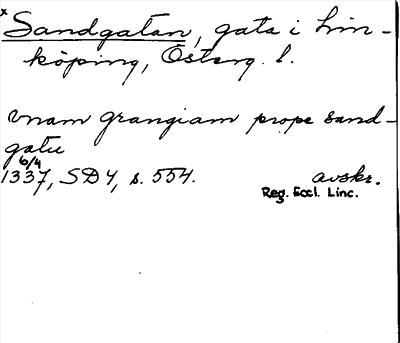 x
Sandgatan, gata i Lin-
köping, Österg. l.
vnam grangiam prope sand-
gatu
6/4
1337, SD 4, s. 554. avskr.
Reg. Eccl. Linc.